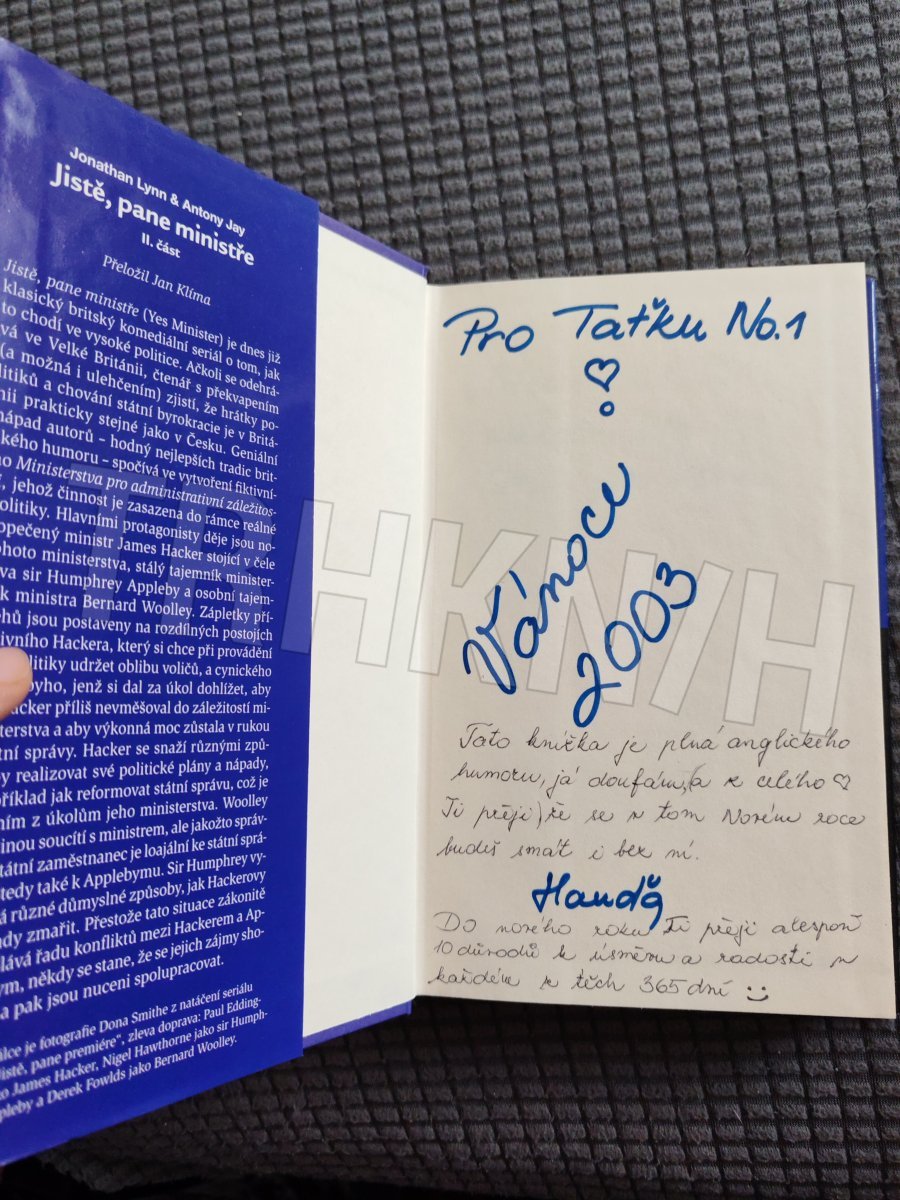 Jonathan Lynn & Antony Jay
Jistě, pane ministře
II. část
Přeložil Jan Klíma
Jistě, pane ministře (Yes Minister) je dnes již
klasický britský komediální seriál o tom, jak
to chodí ve vysoké politice. Ačkoli se odehrá-
vá ve Velké Británii, čtenář s překvapením
(a možná i ulehčením) zjistí, že hrátky po-
litiků a chování státní byrokracie je v Britá-
nii prakticky stejné jako v Česku. Geniální
nápad autorů – hodný nejlepších tradic brit-
kého humoru – spočívá ve vytvoření fiktivní-
ho Ministerstva pro administrativní záležitos-
, jehož činnost je zasazena do rámce reálné
olitiky. Hlavními protagonisty děje jsou no-
opečený ministr James Hacker stojící v čele
ohoto ministerstva, stálý tajemník minister-
va sir Humphrey Appleby a osobní tajem-
k ministra Bernard Woolley. Zápletky pří-
ěhů jsou postaveny na rozdílných postojích
ivního Hackera, který si chce při provádění
litiky udržet oblibu voličů, a cynického
byho, jenž si dal za úkol dohlížet, aby
acker příliš nevměšoval do záležitostí mi-
sterstva a aby výkonná moc zůstala v rukou
tní správy. Hacker se snaží různými způ-
by realizovat své politické plány a nápady,
příklad jak reformovat státní správu, což je
ním z úkolům jeho ministerstva. Woolley
inou soucítí s ministrem, ale jakožto správ-
tátní zaměstnanec je loajální ke státní sprá-
tedy také k Applebymu. Sir Humphrey vy-
á různé důmyslné způsoby, jak Hackerovy
ady zmařit. Přestože tato situace zákonitě
lává řadu konfliktů mezi Hackerem a Ap-
ym, někdy se stane, že se jejich zájmy sho-
a pak jsou nuceni spolupracovat.
álce je fotografie Dona Smithe z natáčení seriálu
Jistě, pane premiére“, zleva doprava: Paul Edding-
ko James Hacker, Nigel Hawthorne jako sir Humph-
ppleby a Derek Fowlds jako Bernard Woolley.
Pro Taťku No.1
Vánoce
2003
Tato knížka je plná anglického
humoru, já doufám, (a z celého ♡
Ti přeji) že se v tom Novém roce
budeš smát i bez ní.
Handa
Do nového roku Ti přeji alespoň
10 důvodů k úsměvu a radosti v
každém z těch 365 dní :-)
TRHKNIH